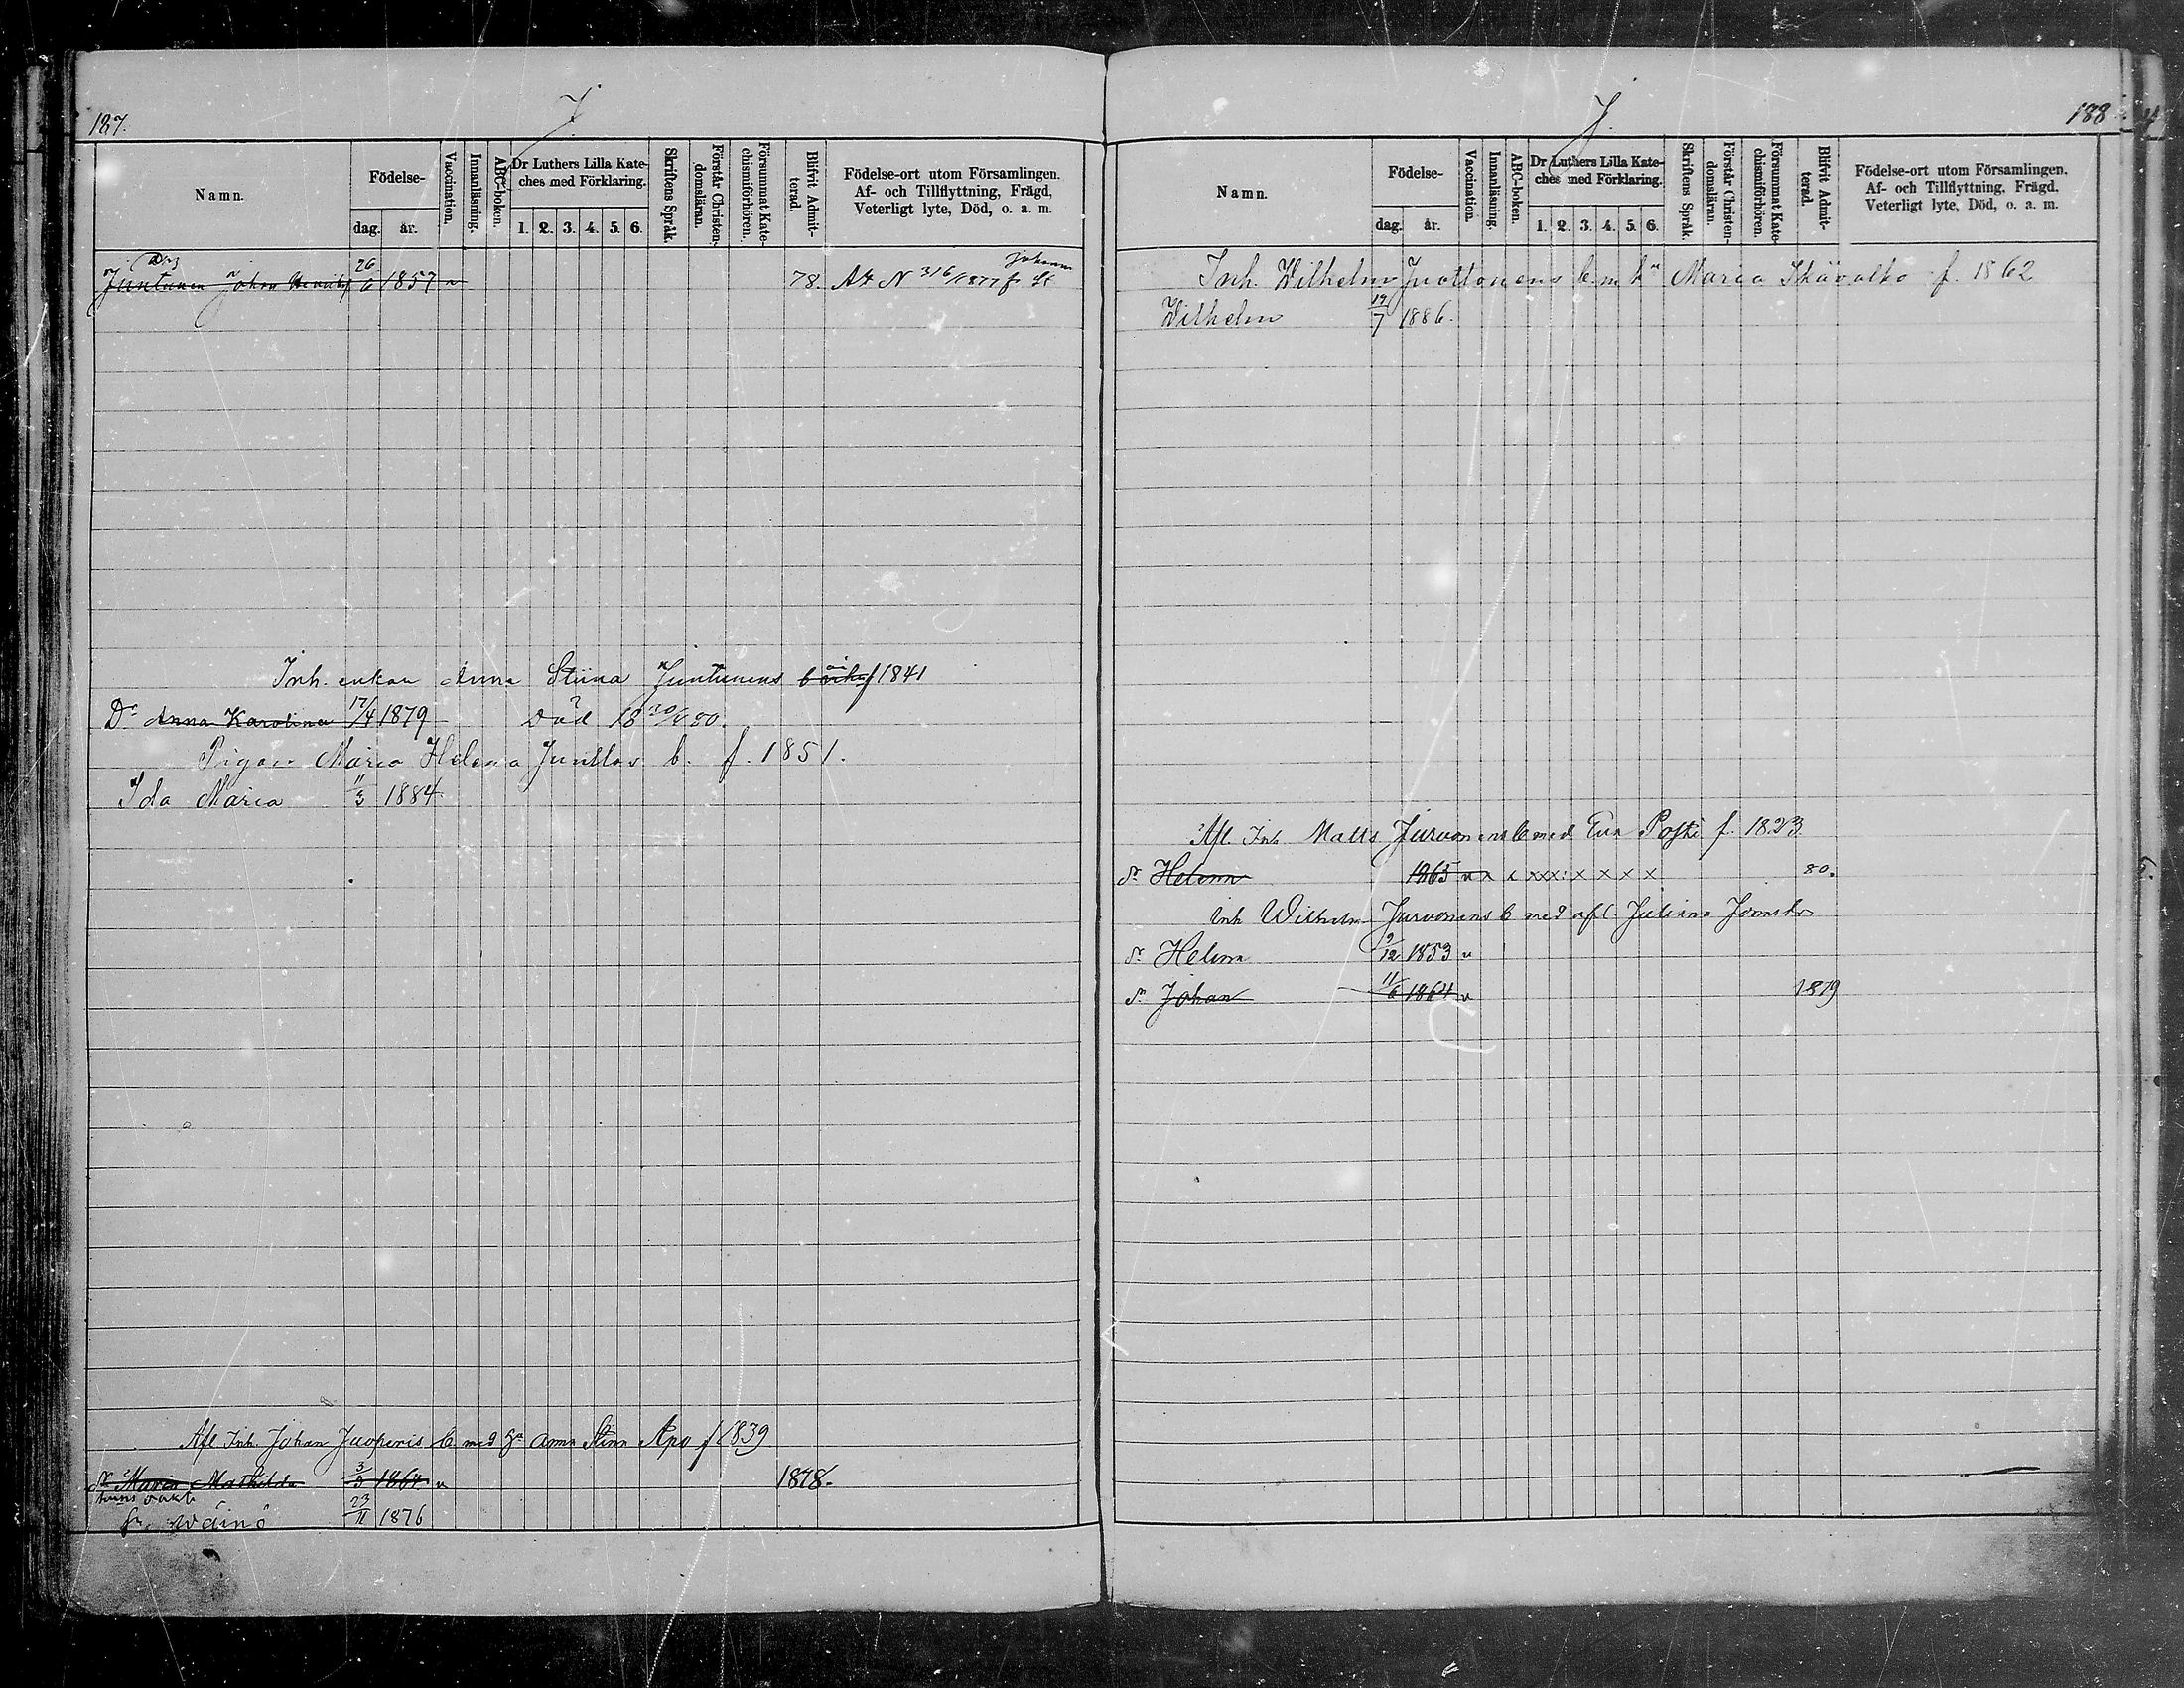 187.
J.
Namn.
Födelse-
dag.
år.
Vaccination.
Innanläsning.
ABC-boken.
Dr Luthers Lilla Kate-
ches med Förklaring.
1. 2. 3. 4. 5. 6.
Skriftens Språk.
Förstår Christen-
domsläran.
Försummat Kate-
chismiförhören.
Blifvit Admit-
terad.
Födelse-ort utom Församlingen.
Af- och Tillflyttning, Frägd,
Veterligt lyte, Död, o. a. m.
Juntunen Johan 26/6 1857 v 78.
Inh. enkan Anna Stiina Juntunens b f 1841
Dr Anna Karolina 17/4 1879 Död
Pigan Maria Helena Junttos b. f. 1851.
Ida Maria 11/3 1884
Afl Inh. Johan Juoperis b med Anna Stina Apo f 1839
Maria Mathilda 3/3 1864 v 1878.
Wäinö 23/11 1876
J.
188
Namn.
Födelse-
dag.
år.
Vaccination.
Innanläsning.
ABC-boken.
Dr Luthers Lilla Kate-
ches med Förklaring.
1. 2. 3. 4. 5. 6.
Skriftens Språk.
Förstår Christen-
domsläran.
Försummat Kate-
chismiförhören.
Blifvit Admit-
terad.
Födelse-ort utom Församlingen.
Af- och Tillflyttning, Frägd.
Veterligt lyte, Död, o. a. m.
Inh. Wilhelm Juottonens b. m. h Maria Ikävalko f. 1862
Wilhelm 19/7 1886.
Afl. Inh Matts Jurvonens b med Eva Posti f. 1823
Helena 1865 v x x xxx x x x x 80.
Inh Wilhelm Jurvonens b med afl. Juliana
Helena 9/12 1853 v
Johan 11/6 1864 v 1879